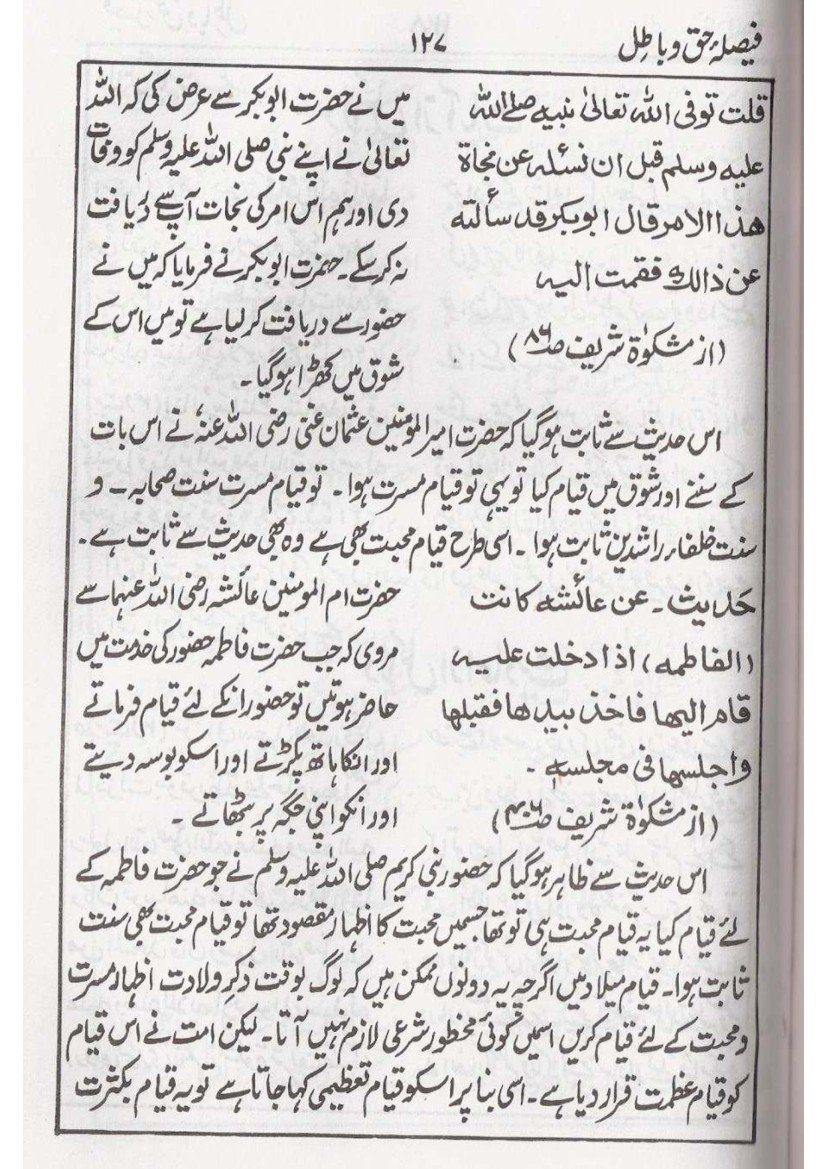 فیصلۂ حق و باطل
۱۲۷
قلت توفى الله تعالىٰ نبيه صلے الله
عليه وسلم قبل ان نسئله عن نجاة
هذا الامر قال ابوبكر قد سألته
عن ذالك فقمت اليه
(از مشکوٰۃ شریف صـ۸۶)
میں نے حضرت ابوبکر سے عرض کی کہ اللہ
تعالیٰ نے اپنے نبی صلی اللہ علیہ وسلم کو وفات
دی اور ہم اس امر کی نجات آپ سے دریافت
نہ کر سکے۔ حضرت ابوبکر نے فرمایا کہ میں نے
حضور سے دریافت کر لیا ہے تو میں اس کے
شوق میں کھڑا ہو گیا۔
اس حدیث سے ثابت ہو گیا کہ حضرت امیر المومنین عثمان غنی رضی اللہ عنہ نے اس بات
کے سننے اور شوق میں قیام کیا تو یہی تو قیام مسرت ہوا۔ تو قیام مسرت سنت صحابہ۔ و
سنت خلفاء راشدین ثابت ہوا۔ اسی طرح قیام محبت بھی ہے وہ بھی حدیث سے ثابت ہے۔
حدیث۔ عن عائشه كانت
(الفاطمه) اذا دخلت عليه
قام اليها فاخذ بيدها فقبلها
واجلسها فى مجلسه۔
(از مشکوٰۃ شریف صـ۴۰۶)
حضرت ام المومنین عائشہ رضی اللہ عنہا سے
مروی کہ جب حضرت فاطمہ حضور کی خدمت میں
حاضر ہوتیں تو حضور انکے لئے قیام فرماتے
اور انکا ہاتھ پکڑتے اور اسکو بوسہ دیتے
اور انکو اپنی جگہ پر بٹھاتے۔
اس حدیث سے ظاہر ہو گیا کہ حضور نبی کریم صلی اللہ علیہ وسلم نے جو حضرت فاطمہ کے
لئے قیام کیا یہ قیام محبت ہی تو تھا جسمیں محبت کا اظہار مقصود تھا تو قیام محبت بھی سنت
ثابت ہوا۔ قیام میلاد میں اگرچہ یہ دونوں ممکن ہیں کہ لوگ بوقت ذکر ولادت اظہار مسرت
و محبت کے لئے قیام کریں اسمیں کوئی محظور شرعی لازم نہیں آتا۔ لیکن امت نے اس قیام
کو قیام عظمت قرار دیا ہے۔ اسی بنا پر اسکو قیام تعظیمی کہا جاتا ہے تو یہ قیام بکثرت